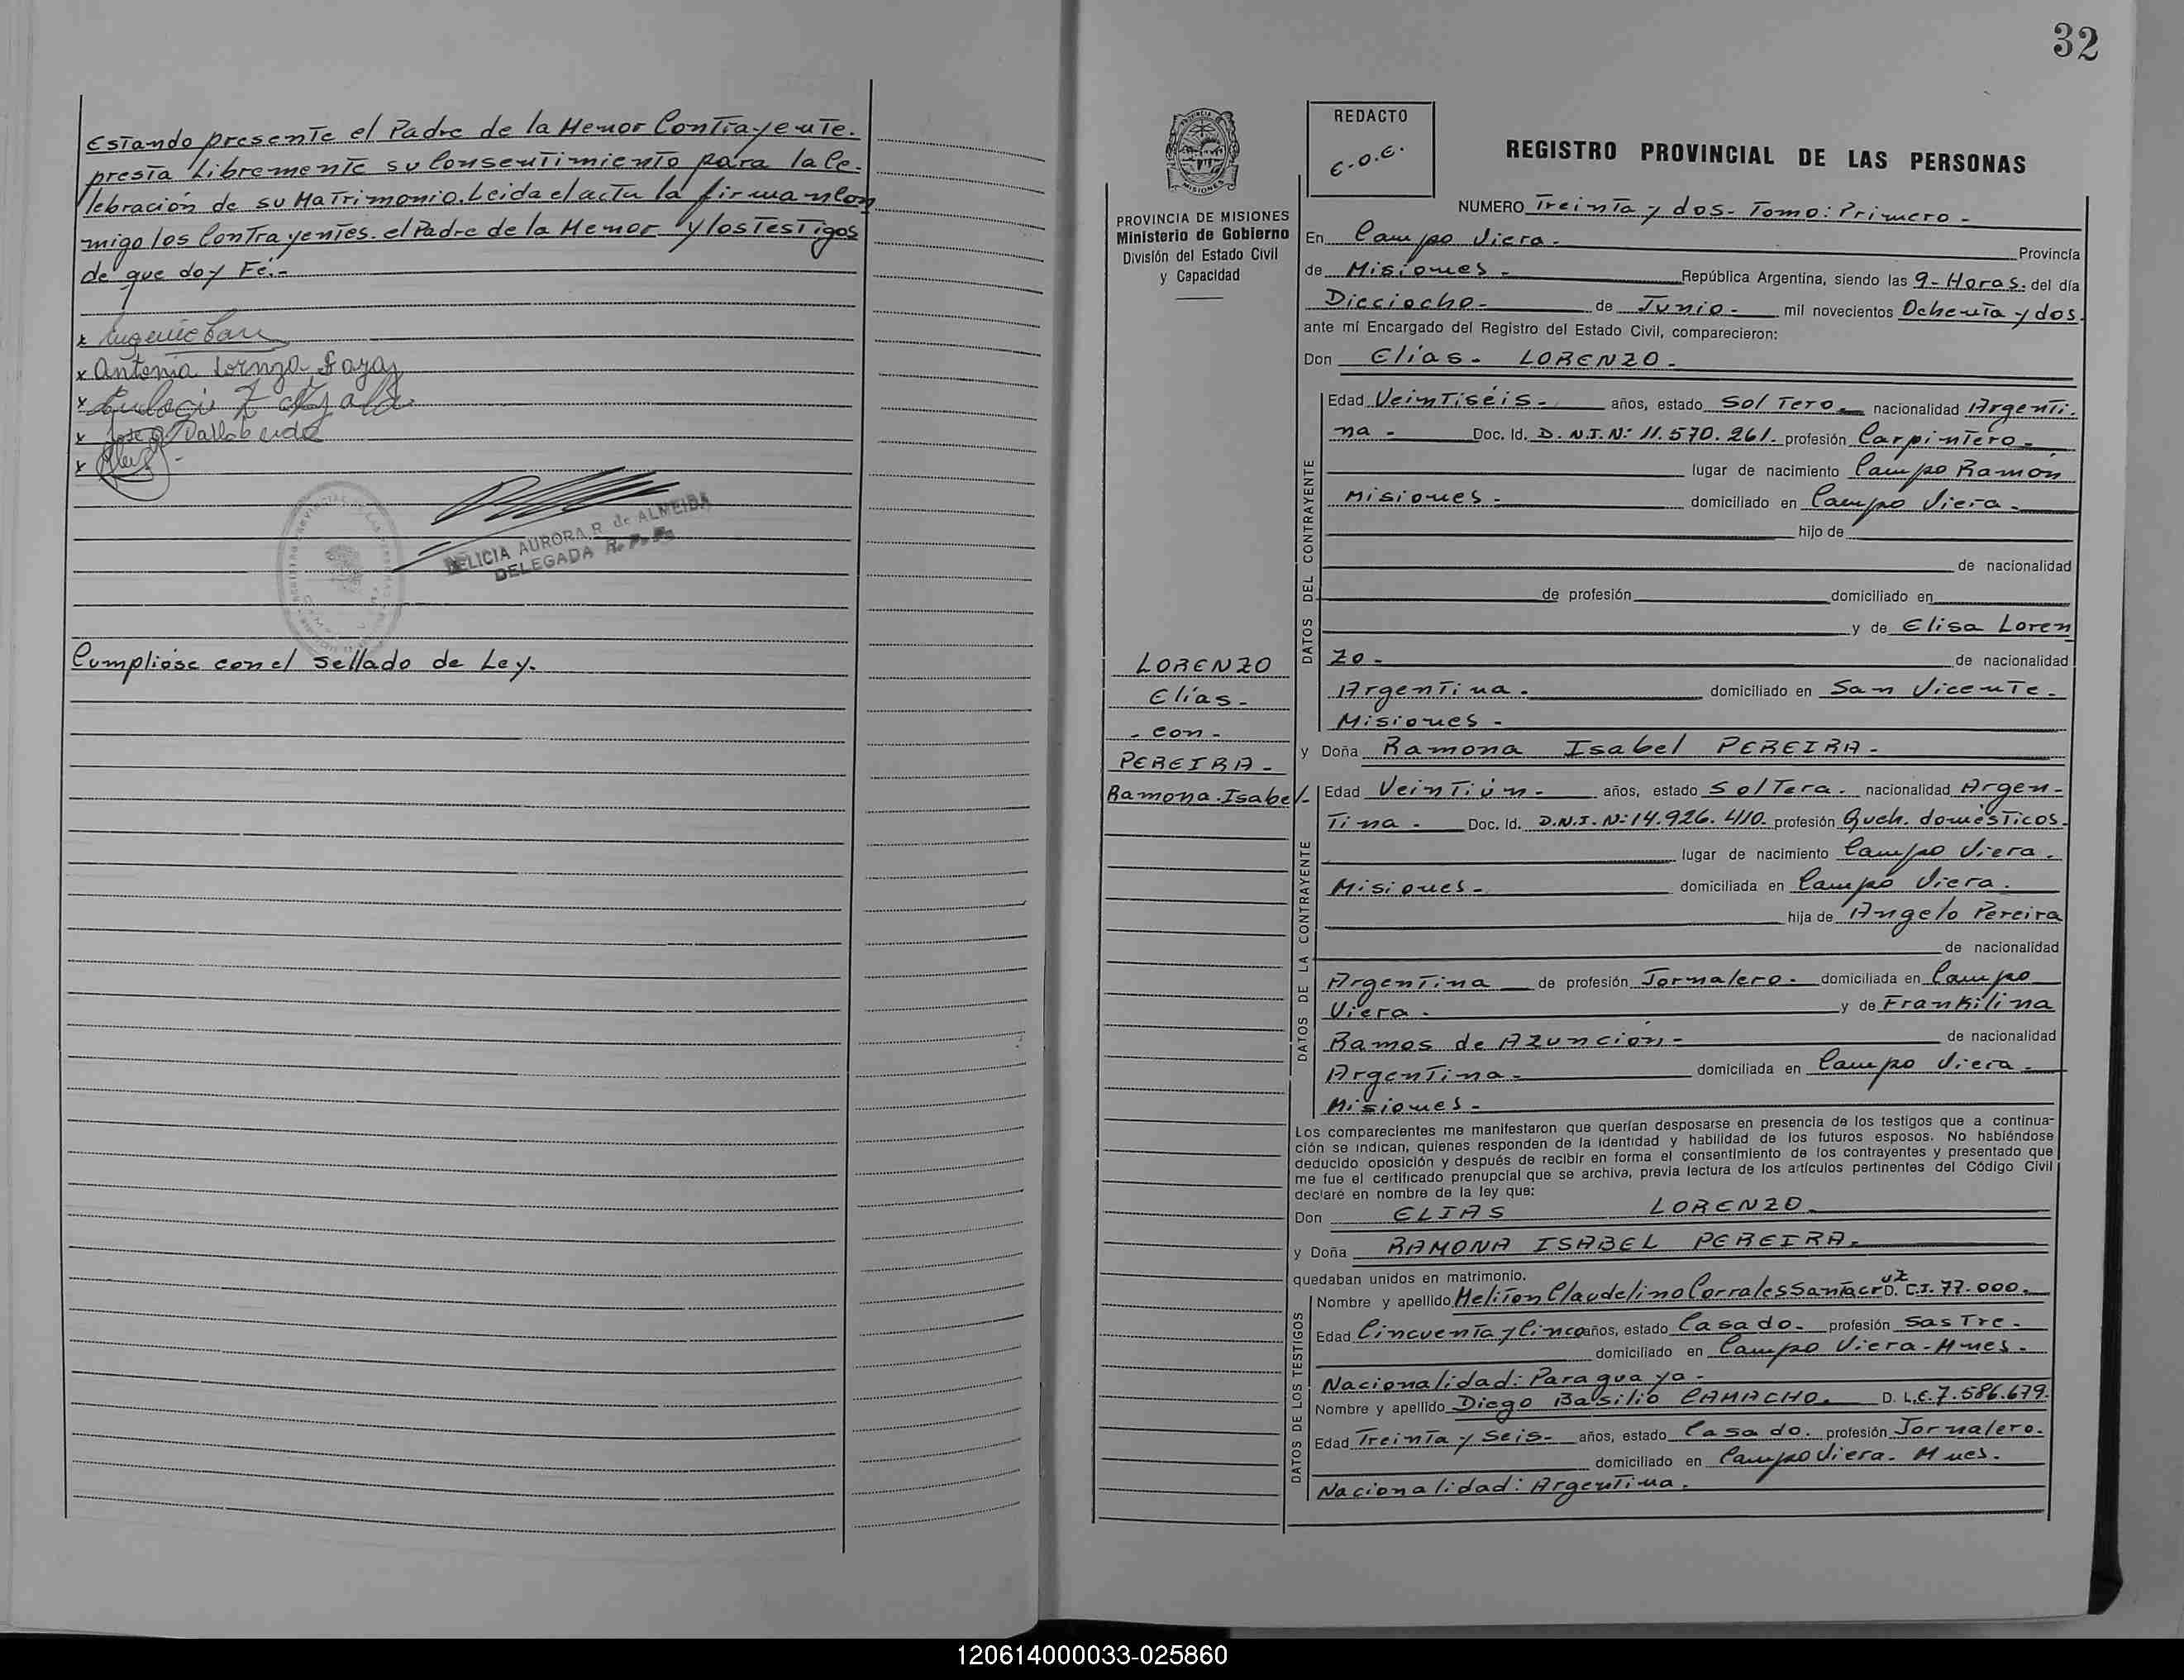 Estando presente el Padre de la Menor Contrayente.
presta Libremente su Consentimiento para la Ce-
lebración de su Matrimonio. Leida el acta la firman con
migo los Contrayentes. el Padre de la Menor y los Testigos
de que doy Fé.-
x Eugenio
x Antonia Lorenzo
x
x José
x
DELICIA AURORA R. de ALMEIDA
DELEGADA R. P. P.
Cumplióse con el sellado de Ley.
32
PROVINCIA DE MISIONES
Ministerio de Gobierno
División del Estado Civil
y Capacidad
LORENZO
Elías -
- con -
PEREIRA -
Ramona Isabel-
REDACTO
E.O.E.
REGISTRO PROVINCIAL DE LAS PERSONAS
NUMERO Treinta y dos- Tomo: Primero -
En Campo Viera - Provincia
de Misiones - República Argentina, siendo las 9- Horas. del día
Dieciocho - de Junio - mil novecientos Ochenta y dos.
ante mí Encargado del Registro del Estado Civil, comparecieron:
Don Elías - LORENZO -
DATOS DEL CONTRAYENTE
Edad Veintiséis - años, estado Soltero - nacionalidad Argenti-
na - Doc. Id. D.N.I. N: 11.570.261- profesión Carpintero -
lugar de nacimiento Campo Ramón
Misiones - domiciliado en Campo Viera -
hijo de
de nacionalidad
de profesión domiciliado en
y de Elisa Loren
zo - de nacionalidad
Argentina - domiciliado en San Vicente -
Misiones -
y Doña Ramona Isabel PEREIRA -
DATOS DE LA CONTRAYENTE
Edad Veintiún - años, estado Soltera - nacionalidad Argen-
tina - Doc. Id. D.N.I. N: 14.926.410 profesión Queh. domésticos-
lugar de nacimiento Campo Viera.
Misiones - domiciliada en Campo Viera.
hija de Angelo Pereira
de nacionalidad
Argentina de profesión Jornalero - domiciliada en Campo
Viera - y de Frankilina
Ramos de Azunción - de nacionalidad
Argentina - domiciliada en Campo Viera -
Misiones -
Los comparecientes me manifestaron que querían desposarse en presencia de los testigos que a continua-
ción se indican, quienes responden de la identidad y habilidad de los futuros esposos. No habiéndose
deducido oposición y después de recibir en forma el consentimiento de los contrayentes y presentado que
me fue el certificado prenupcial que se archiva, previa lectura de los artículos pertinentes del Código Civil
declaré en nombre de la ley que:
Don ELIAS LORENZO -
y Doña RAMONA ISABEL PEREIRA -
quedaban unidos en matrimonio.
DATOS DE LOS TESTIGOS
Nombre y apellido Helíton Claudelino Corrales Santacruz D. C.I. 77.000.
Edad Cincuenta y Cinco años, estado Casado - profesión Sastre -
domiciliado en Campo Viera - Mnes -
Nacionalidad: Paraguaya -
Nombre y apellido Diego Basilio CAMACHO. D. L.E. 7.586.679.
Edad Treinta y Seis - años, estado Casado. profesión Jornalero.
domiciliado en Campo Viera. Mnes.
Nacionalidad: Argentina.
120614000033-025860